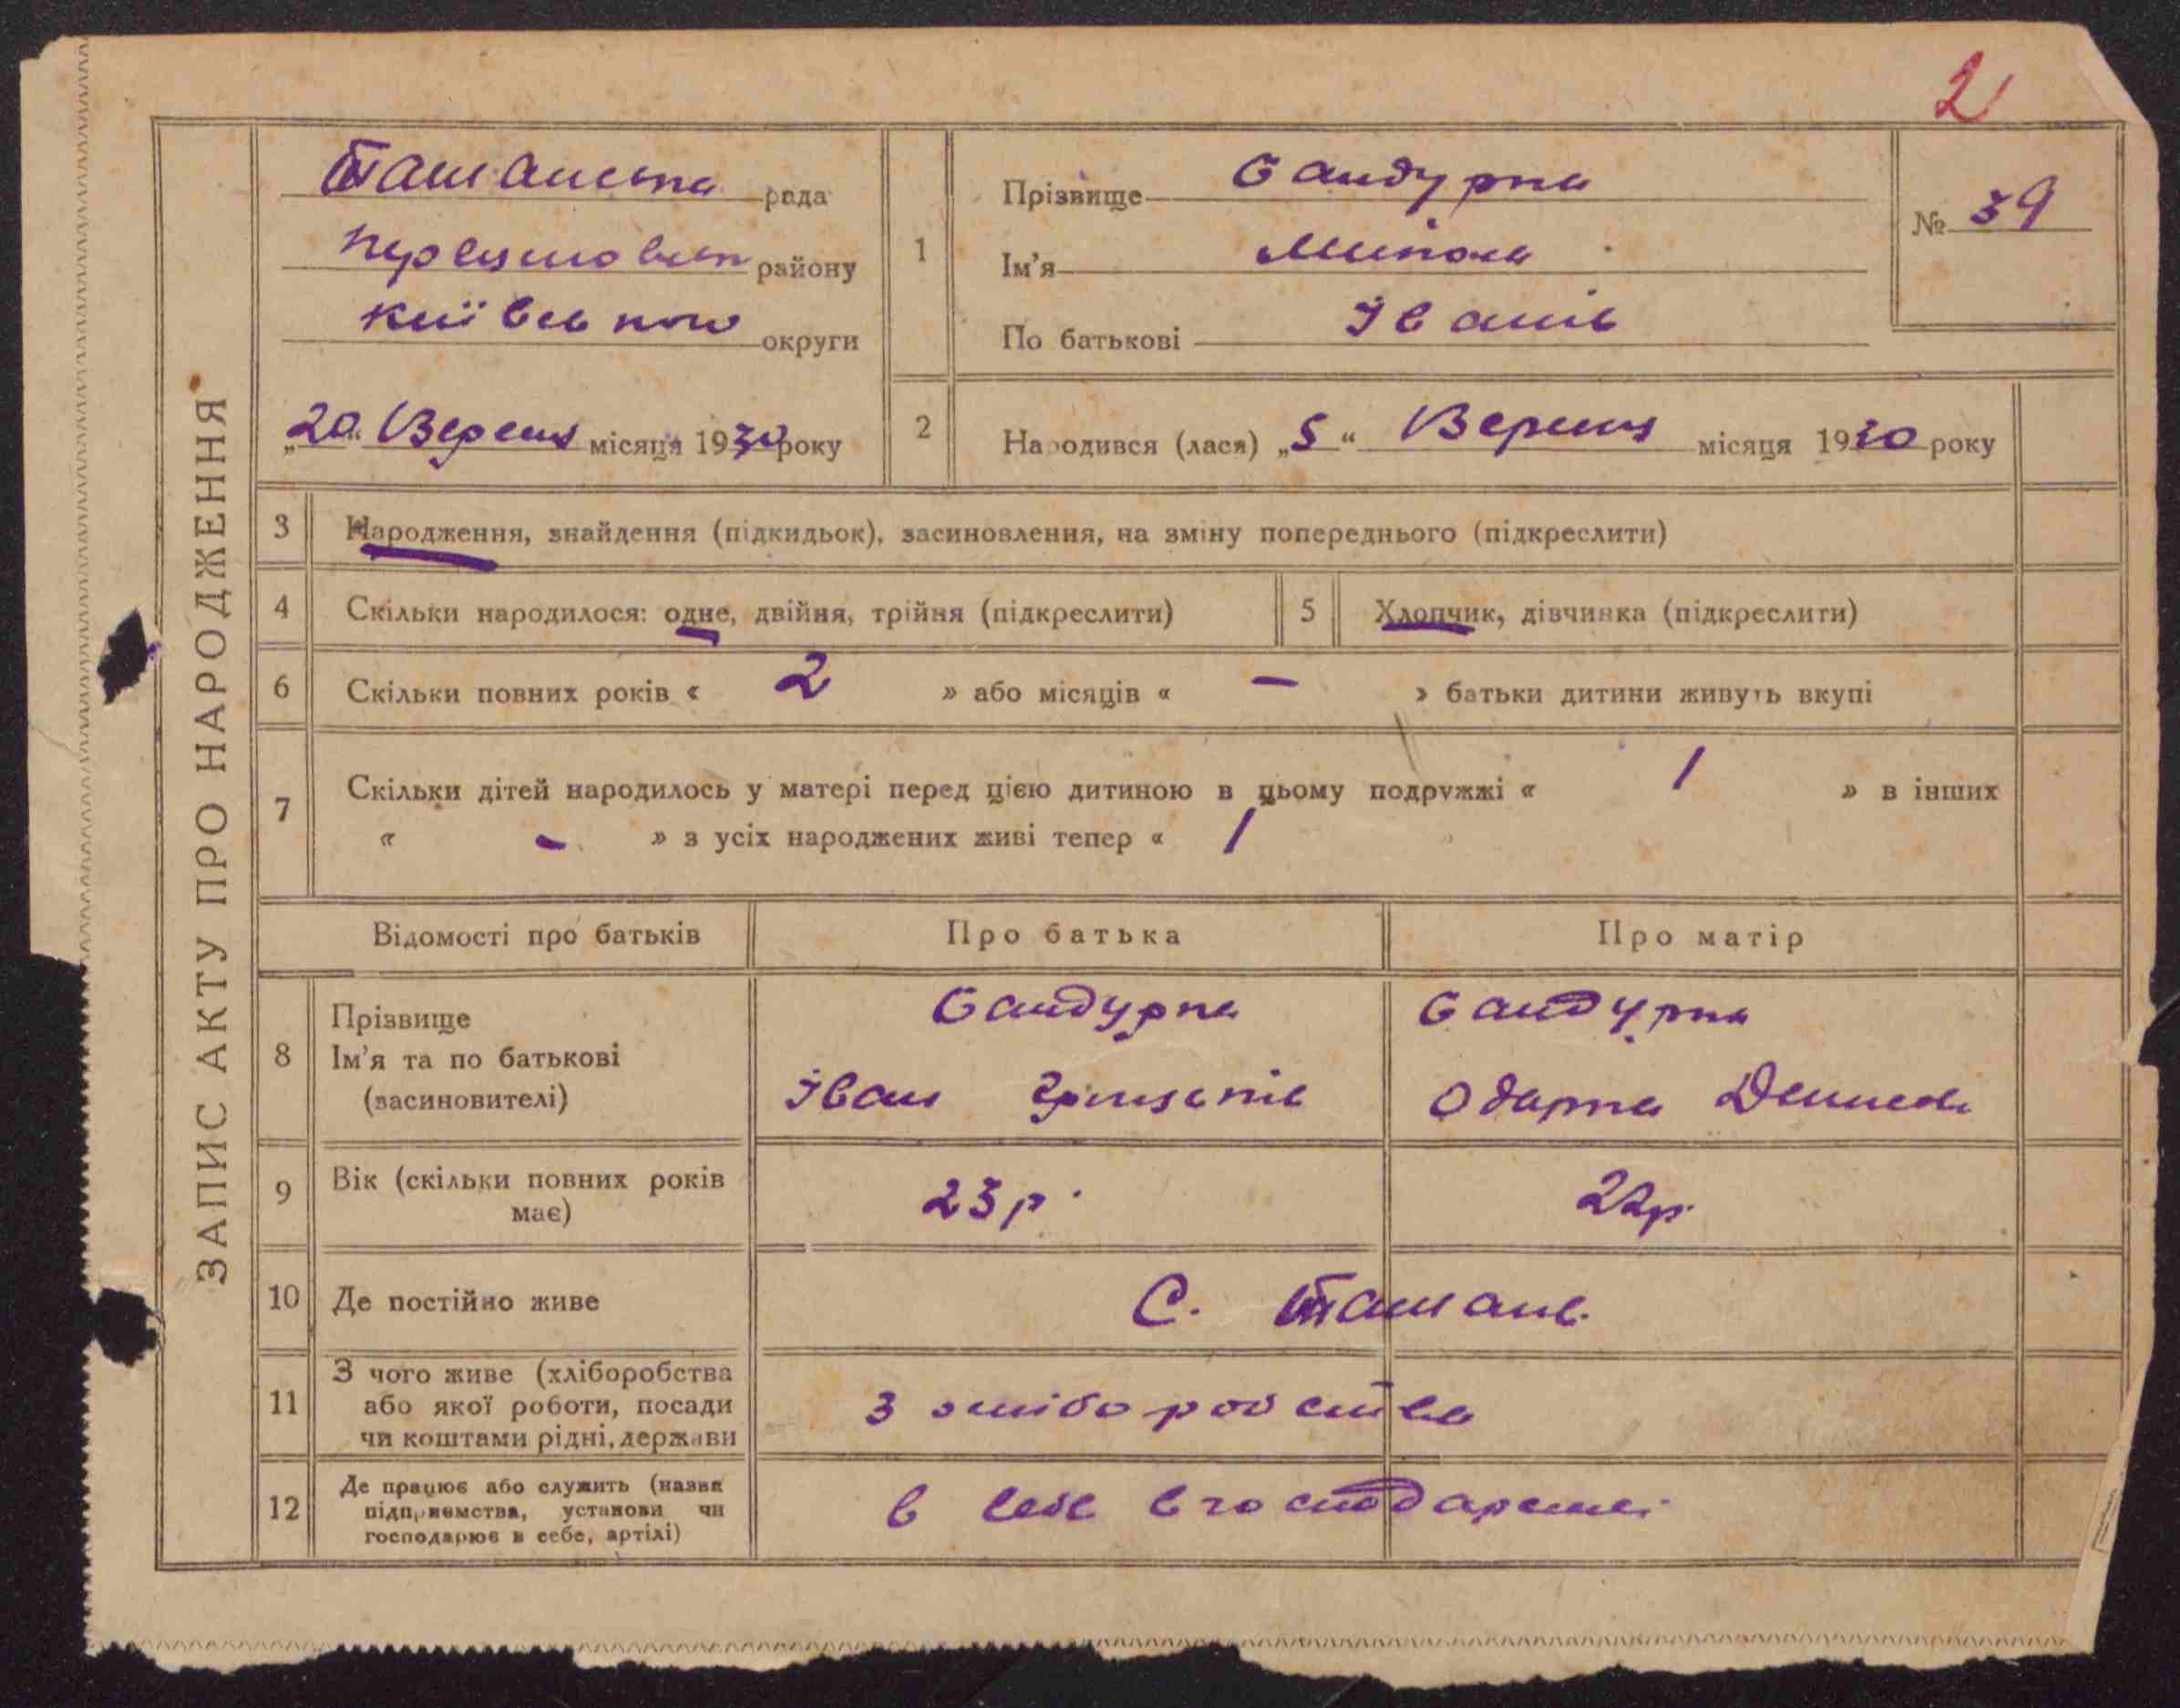 2
ЗАПИС АКТУ ПРО НАРОДЖЕННЯ
Ташанська рада
району
Київської округи
„20“ Вересня місяця 1930 року
1
Прізвище Сандурка
Ім’я Микола
По батькові Іванів
№ 39
2
Народився (лася) „5“ Вересня місяця 1930 року
3 Народження, знайдення (підкидьок), засиновлення, на зміну попереднього (підкреслити)
4 Скільки народилося: одне, двійня, трійня (підкреслити) 5 Хлопчик, дівчинка (підкреслити)
6 Скільки повних років « 2 » або місяців « – » батьки дитини живуть вкупі
7 Скільки дітей народилось у матері перед цією дитиною в цьому подружжі « 1 » в інших
« - » з усіх народжених живі тепер « 1
Відомості про батьків Про батька Про матір
8 Прізвище Сандурка Сандурка
Ім’я та по батькові
(засиновителі) Іван Одарка
9 Вік (скільки повних років має) 23 р. 22 р.
10 Де постійно живе С. Ташань.
11 З чого живе (хліборобства
або якої роботи, посади
чи коштами рідні, держави
З хліборобства
12 Де працює або служить (назва
підприємства, установи чи
господарює в себе, артілі)
в себе в господарстві